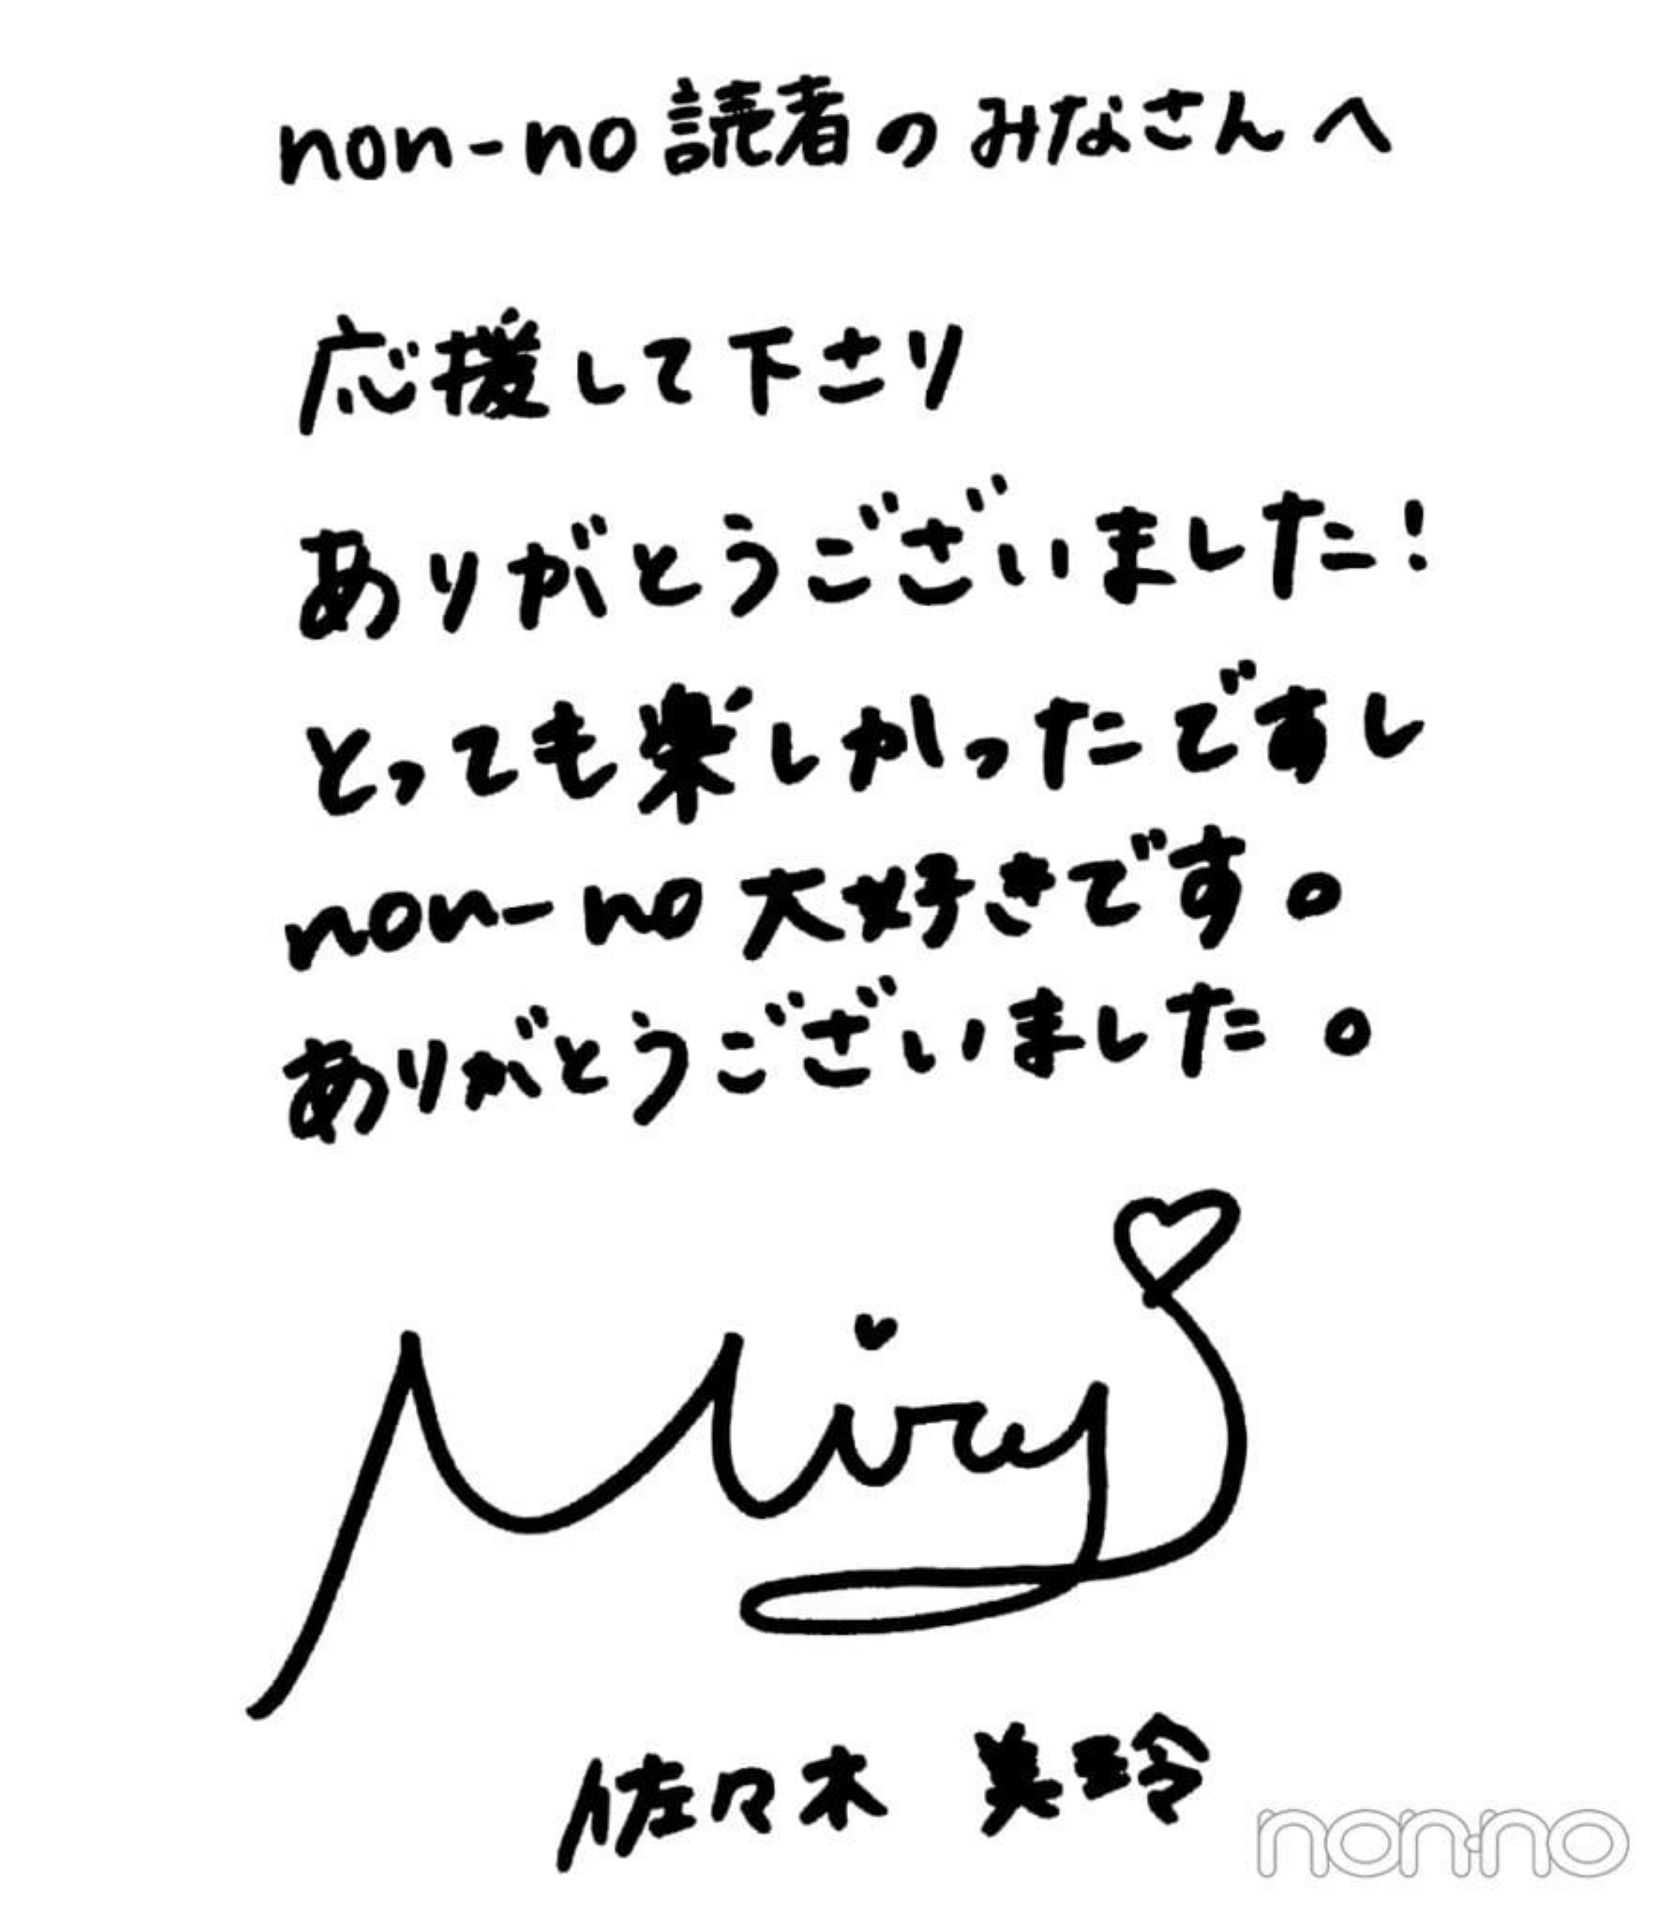 non-no読者のみなさんへ
応援して下さり
ありがとうございました!
とっても楽しかったですし
non-no大好きです。
ありがとうございました。
Mirey
佐々木 美玲
non-no